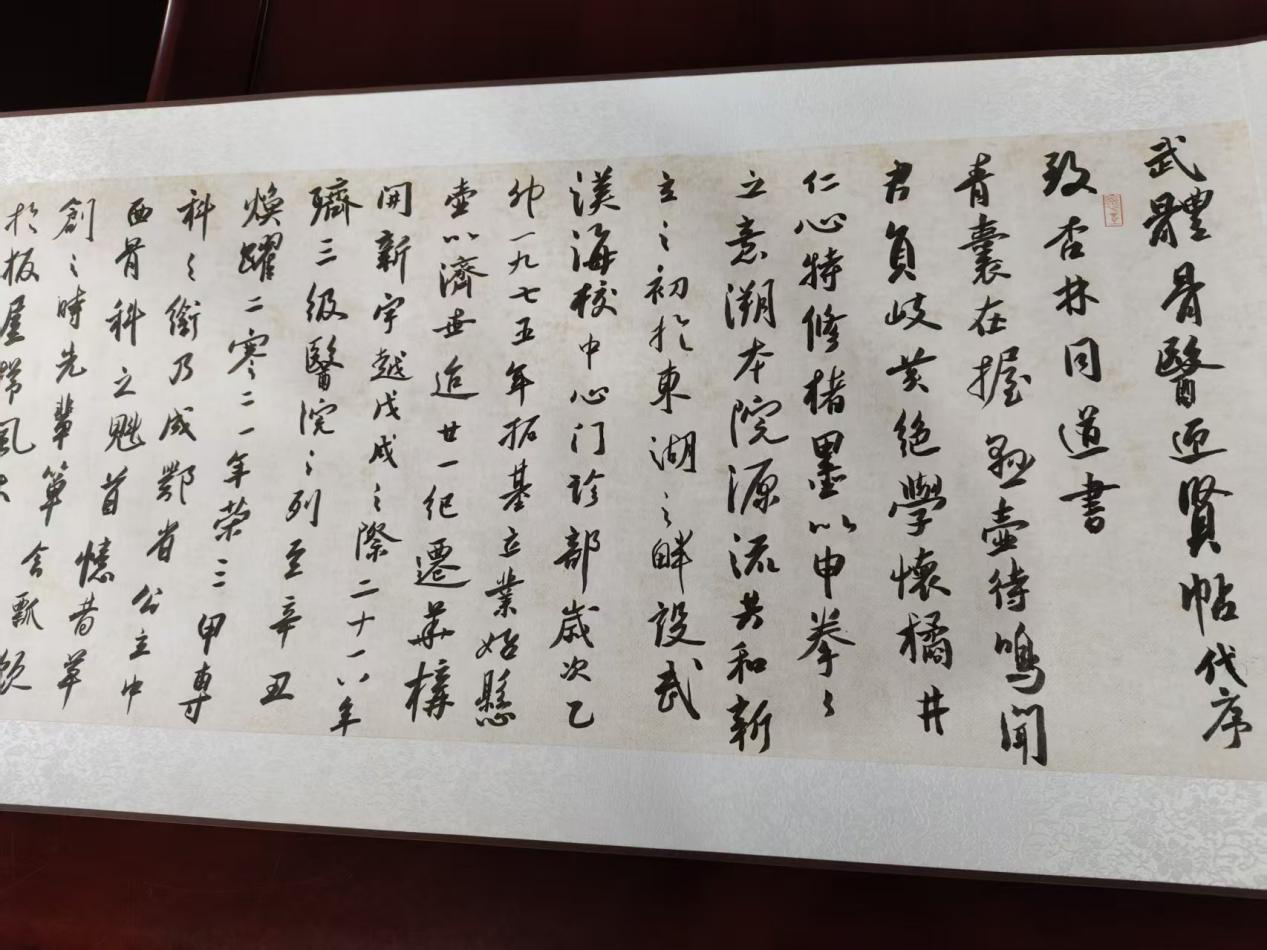 武體骨醫迎賢帖代序
致杏林同道書
青囊在握懸壺待鳴聞
君負岐黃絕學懷橘井
仁心特修楮墨以申拳々
之意溯本院源流共和新
立之初於東湖之畔設武
漢海校中心门診部歲次乙
卯一九七五年拓基立業始懸
壺以濟世迨廿一纪遷華構
開新宇越戊戌之際二十一八年
躋三级醫院之列至辛丑
焕躍二零二一年荣三甲專
科之銜乃成鄂省公立中
西骨科之魁首憶昔草
創之時先輩簞食瓢飲
於板屋